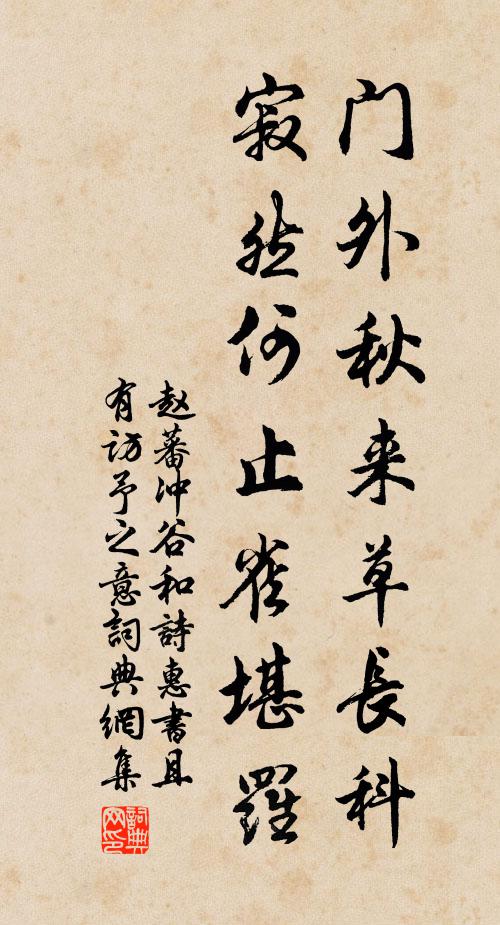 门外秋来草长科
寂然何止雀堪羅
赵蕃沖谷和詩惠書且
有访予之意詞典網集
詞典网印